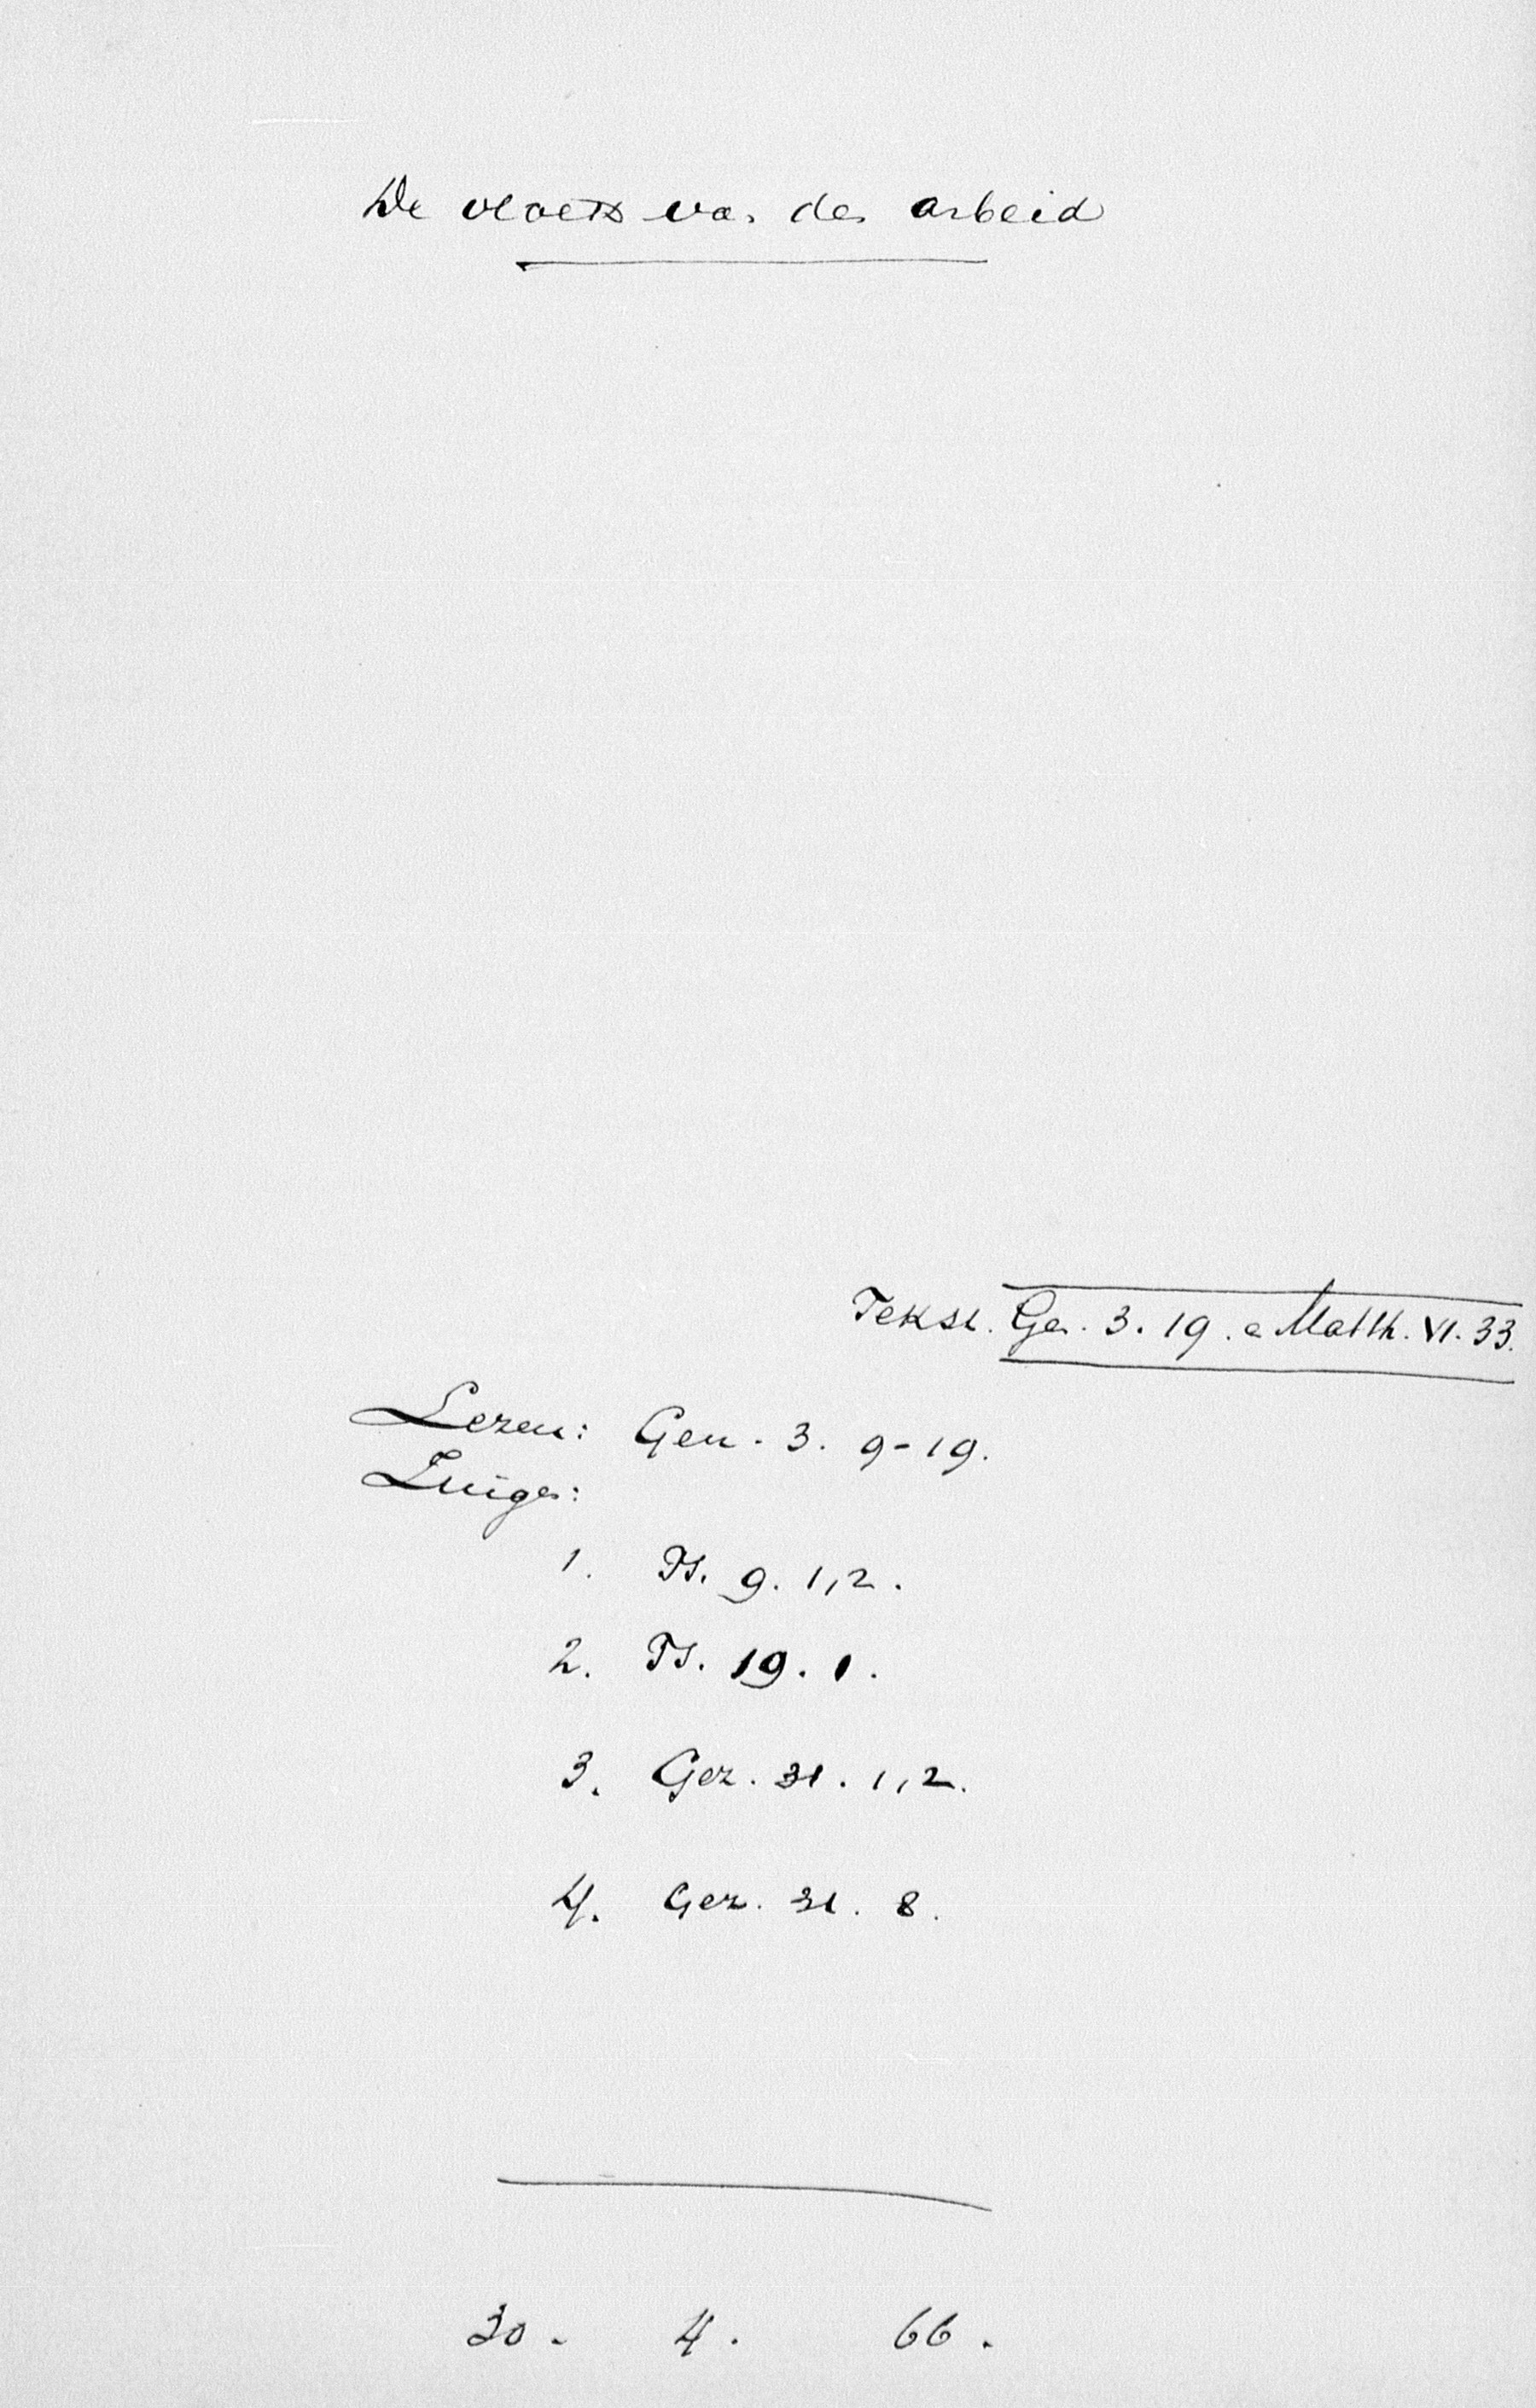 De vloek van den arbeid
Tekst. Gen. 3. 19. a Matth. VI. 33.
Lezen: Gen. 3. 9-19.
Zingen:
1. Ps. 9. 1,2.
2. Ps. 19. 1.
3. Gez. 31. 1,2.
4. Gez. 31. 8.
30. 4. 66.